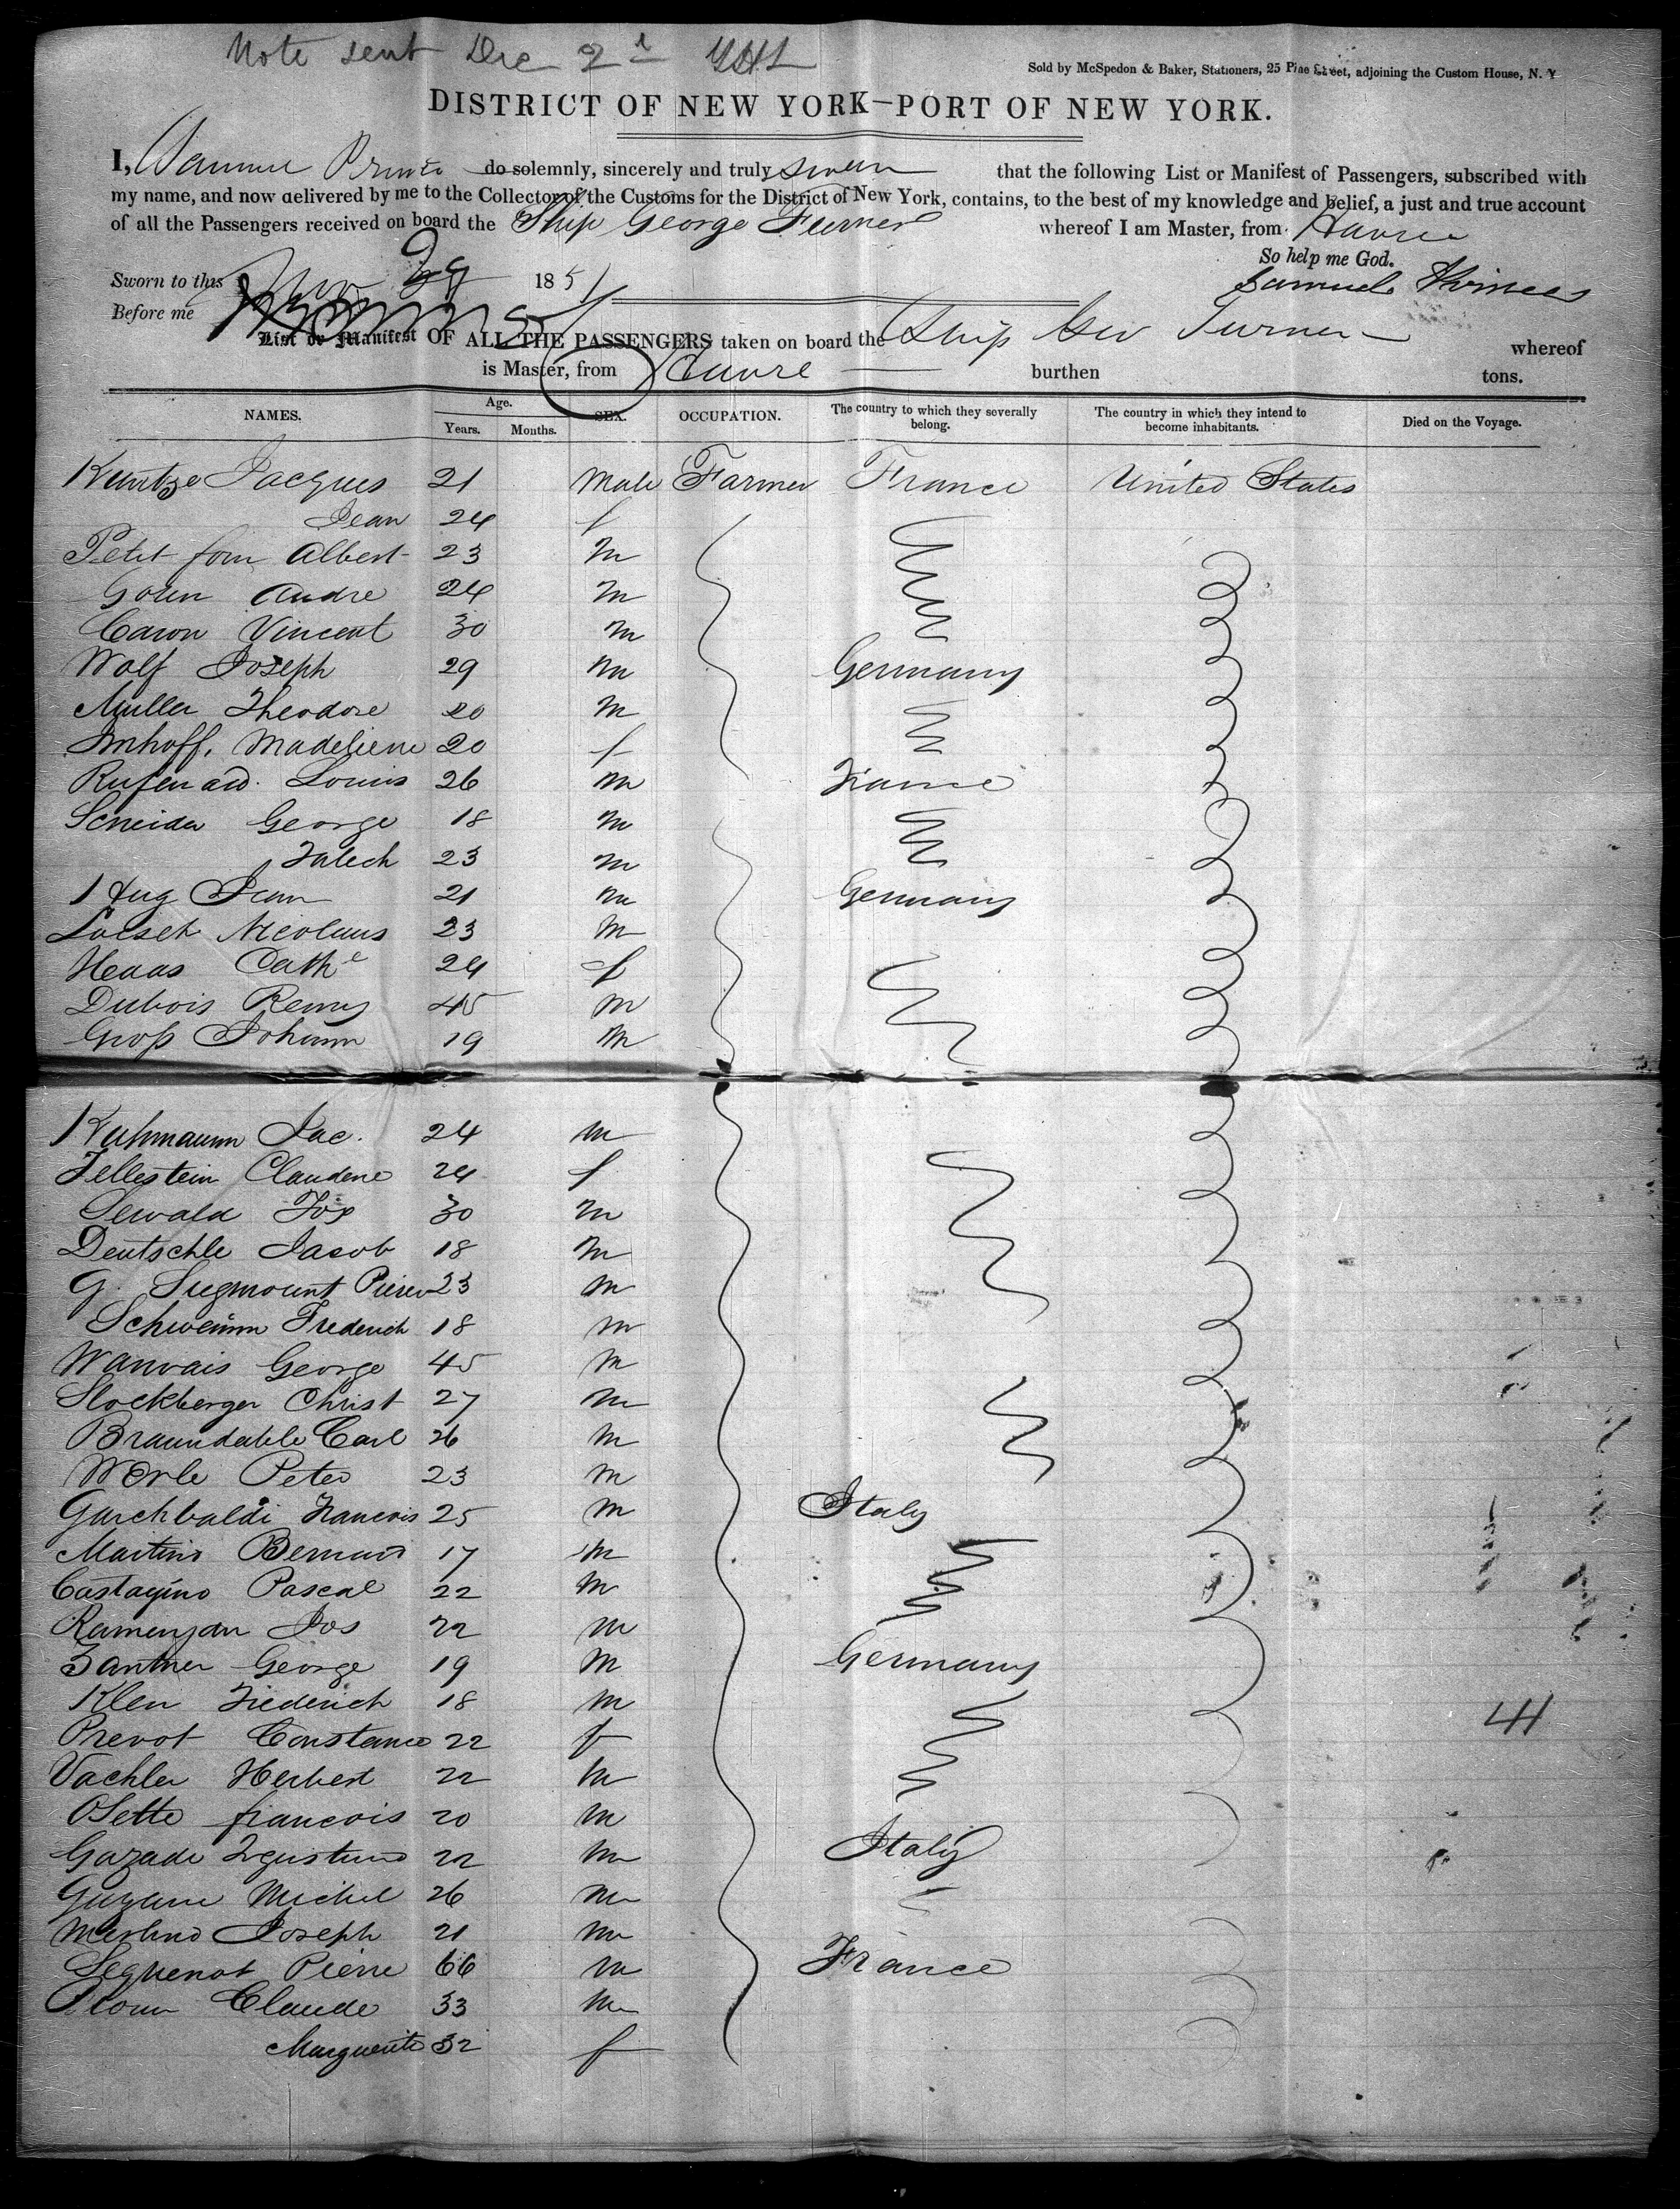 Note sent Dec 2d
Sold by McSpedon & Baker, Stationers, 25 Pine Street, adjoining the Custom House, N. Y
DISTRICT OF NEW YORK—PORT OF NEW YORK.
I, Samuel do solemnly, sincerely and truly swear that the following List or Manifest of Passengers, subscribed with
my name, and now delivered by me to the Collector of the Customs for the District of New York, contains, to the best of my knowledge and belief, a just and true account
of all the Passengers received on board the Ship George Turner whereof I am Master, from Havre
So help me God.
Sworn to this Nov 29 1851 Samuel
Before me
List or Manifest OF ALL THE PASSENGERS taken on board the Ship Geo Turner whereof
is Master, from Havre burthen tons.
NAMES. Age. Years. Months. SEX. OCCUPATION. The country to which they severally belong. The country in which they intend to become inhabitants. Died on the Voyage.
Kuntze Jacques 21 Male Farmer France United States
Jean 24 f
Petit Albert 23 m
Andre 24 m
Caron Vincent 30 m
Wolf Joseph 29 m Germany
Muller Theodore 20 m
Imhoff, Madeliene 20 f
Louis 26 m France
Scneider George 18 m
23 m
Hug Jean 21 m Germany
Loesch Nicolaus 23 m
Haas Cathe 24 f
Dubois Remy 45 m
Groß Johann 19 m
Kuhmaunn Jac. 24 m
Fellestein Claudene 24 f
Sewald Jos 30 m
Deutschle Jacob 18 m
G. Siegmount 23 m
Schweimm Frederich 18 m
Wanvais George 45 m
Stockberger Christ 27 m
Braundable Carl 26 m
Worle Peter 23 m
Garchbaldi Francois 25 m Italy
Martino Bernard 17 m
Castagino Pascal 22 m
Jos 22 m
Zantner George 19 m Germany
Klen Friederich 18 m
41
Prevot Constance 22 f
Vachler Herbert 22 m
Osette francois 20 m
22 m Italy
Michel 26 m
Merlino Joseph 21 m
Seguenot Pierre 66 m France
Claude 33 m
Marguerite 32 f